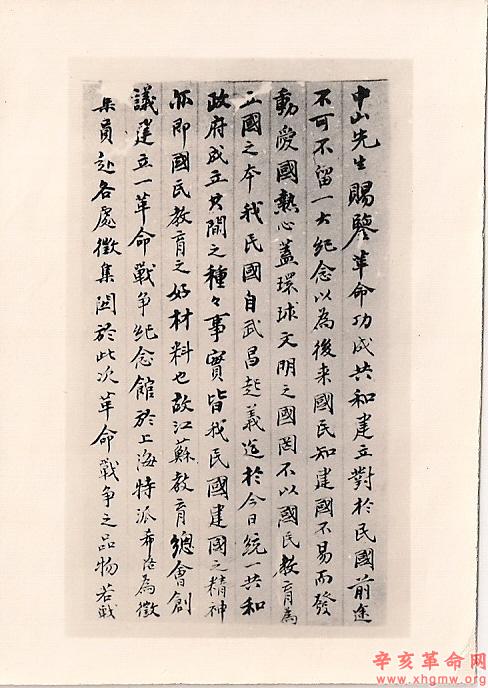 中山先生賜鑒革命功成共和建立對於民國前途
不可不留一大紀念以為後来國民知建國不易而發
動愛國熱心蓋環球文明之國罔不以國民教育為
立國之本我民國自武昌起義迄於今日統一共和
政府成立其間之種々事實皆我民國建國之精神
亦即國民教育之好材料也故江蘇教育總會創
議建立一革命戰爭紀念館於上海特派希洛為徵
集員赴各處徵集関於此次革命戰爭之品物若戰
辛亥革命网
www.xhgmw.org